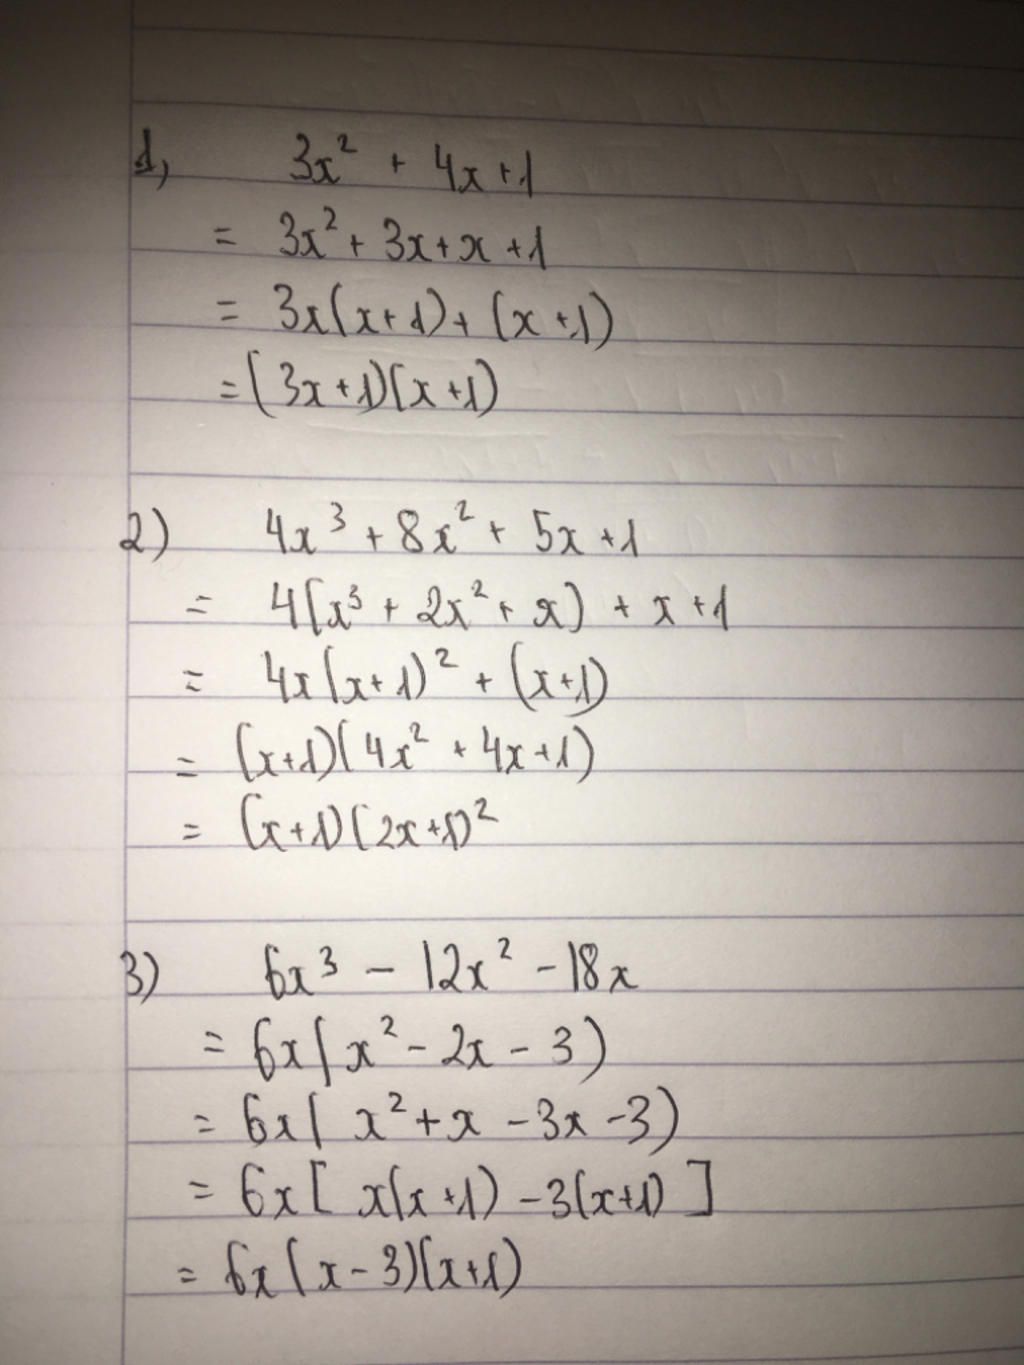 1, 3x² + 4x + 1
= 3x² + 3x + x + 1
= 3x(x+1) + (x+1)
= (3x+1)(x+1)
2) 4x³ + 8x² + 5x + 1
= 4(x³ + 2x² + x) + x + 1
= 4x(x+1)² + (x+1)
= (x+1)(4x² + 4x + 1)
= (x+1)(2x+1)²
3) 6x³ - 12x² - 18x
= 6x(x² - 2x - 3)
= 6x(x² + x - 3x - 3)
= 6x[x(x+1) - 3(x+1)]
= 6x(x-3)(x+1)